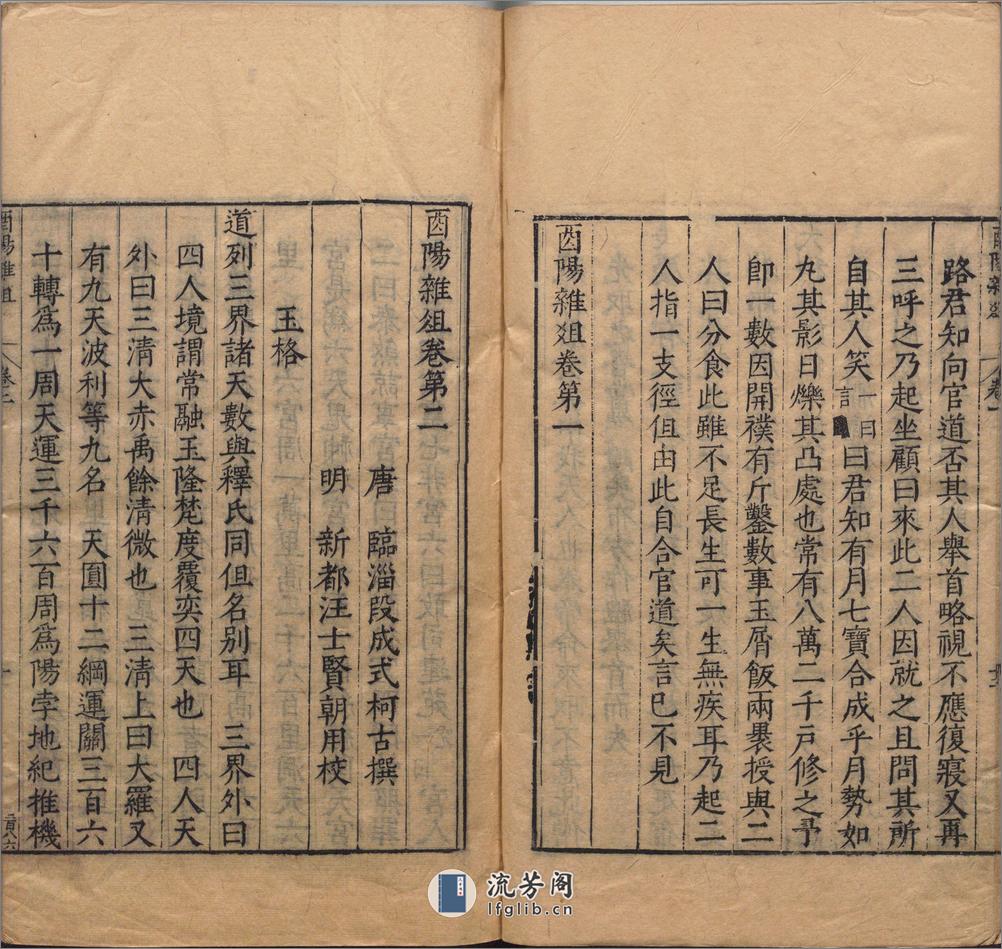 酉陽雜俎 卷一
路君知向官道否其人舉首略視不應復寢又再
三呼之乃起坐顧曰來此二人因就之且問其所
自其人笑一曰言曰君知有月七寶合成乎月勢如
丸其影日爍其凸處也常有八萬二千戶修之予
卽一數因開襆有斤鑿數事玉屑飯兩裹授與二
人曰分食此雖不足長生可一生無疾耳乃起二
人指一支徑但由此自合官道矣言已不見
酉陽雜俎卷第一
酉陽雜俎卷第二
唐 臨淄段成式柯古撰
明 新都汪士賢朝用校
玉格
道列三界諸天數與釋氏同但名別耳 三界外曰
四人境謂常融玉隆梵度覆奕四天也 四人天
外曰三清大赤禹餘清微也 三清上曰大羅又
有九天波利等九名 天圓十二綱運關三百六
十轉為一周天運三千六百周為陽孛地紀推機
酉陽雜俎 卷二 一
流芳阁
lfglib.cn